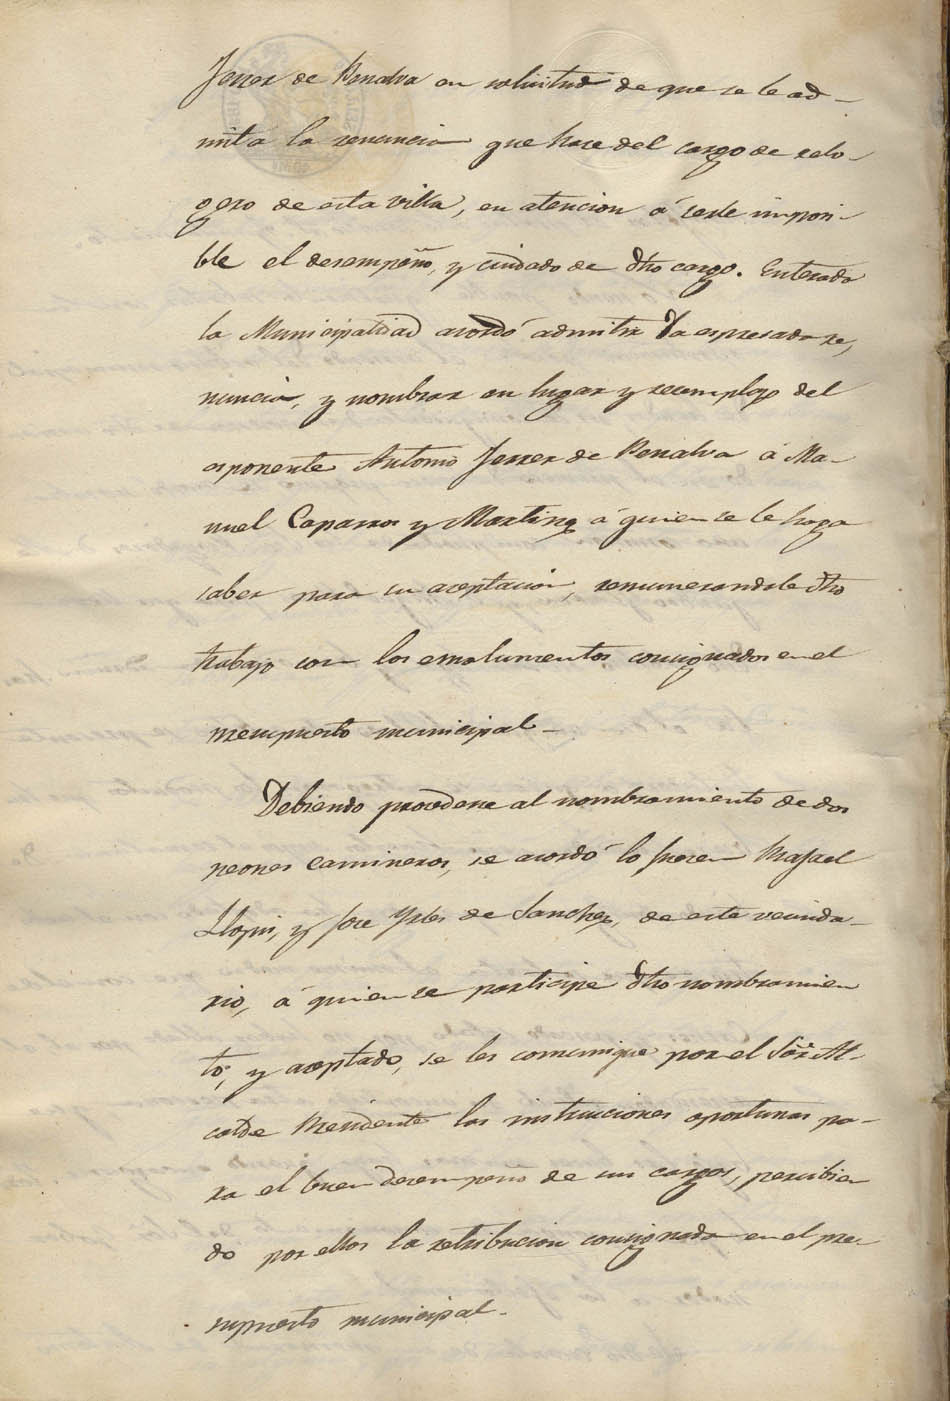 Ferrer de Penalva en solicitud de que se le ad-
mita la renuncia que hace del cargo de relo-
gero de esta villa, en atencion á serle imposi-
ble el desempeño, y cuidado de dho cargo. Enterada
la Municipalidad acordó admitir la espresada re,
nuncia, y nombrar en lugar y reemplazo del
esponente Antonio Ferrer de Penalva á Ma-
nuel Caparros y Martinez á quien se le haga
saber para su aceptacion, remunerandole dho
trabajo con los emolumentos consignados en el
presupuesto municipal-
Debiendo procederse al nombramiento de dos
peones camineros, se acordó lo fueren Rafael
y Jose de Sanchez, de este vecinda-
rio, á quien se participe dho nombramien
to, y aceptado, se les comunique por el Sor Al-
calde Presidente las instrucciones oportunas pa-
ra el buen desempeño de sus cargos, percibien
do por ellos la retribucion consignada en el pre-
supuesto municipal-